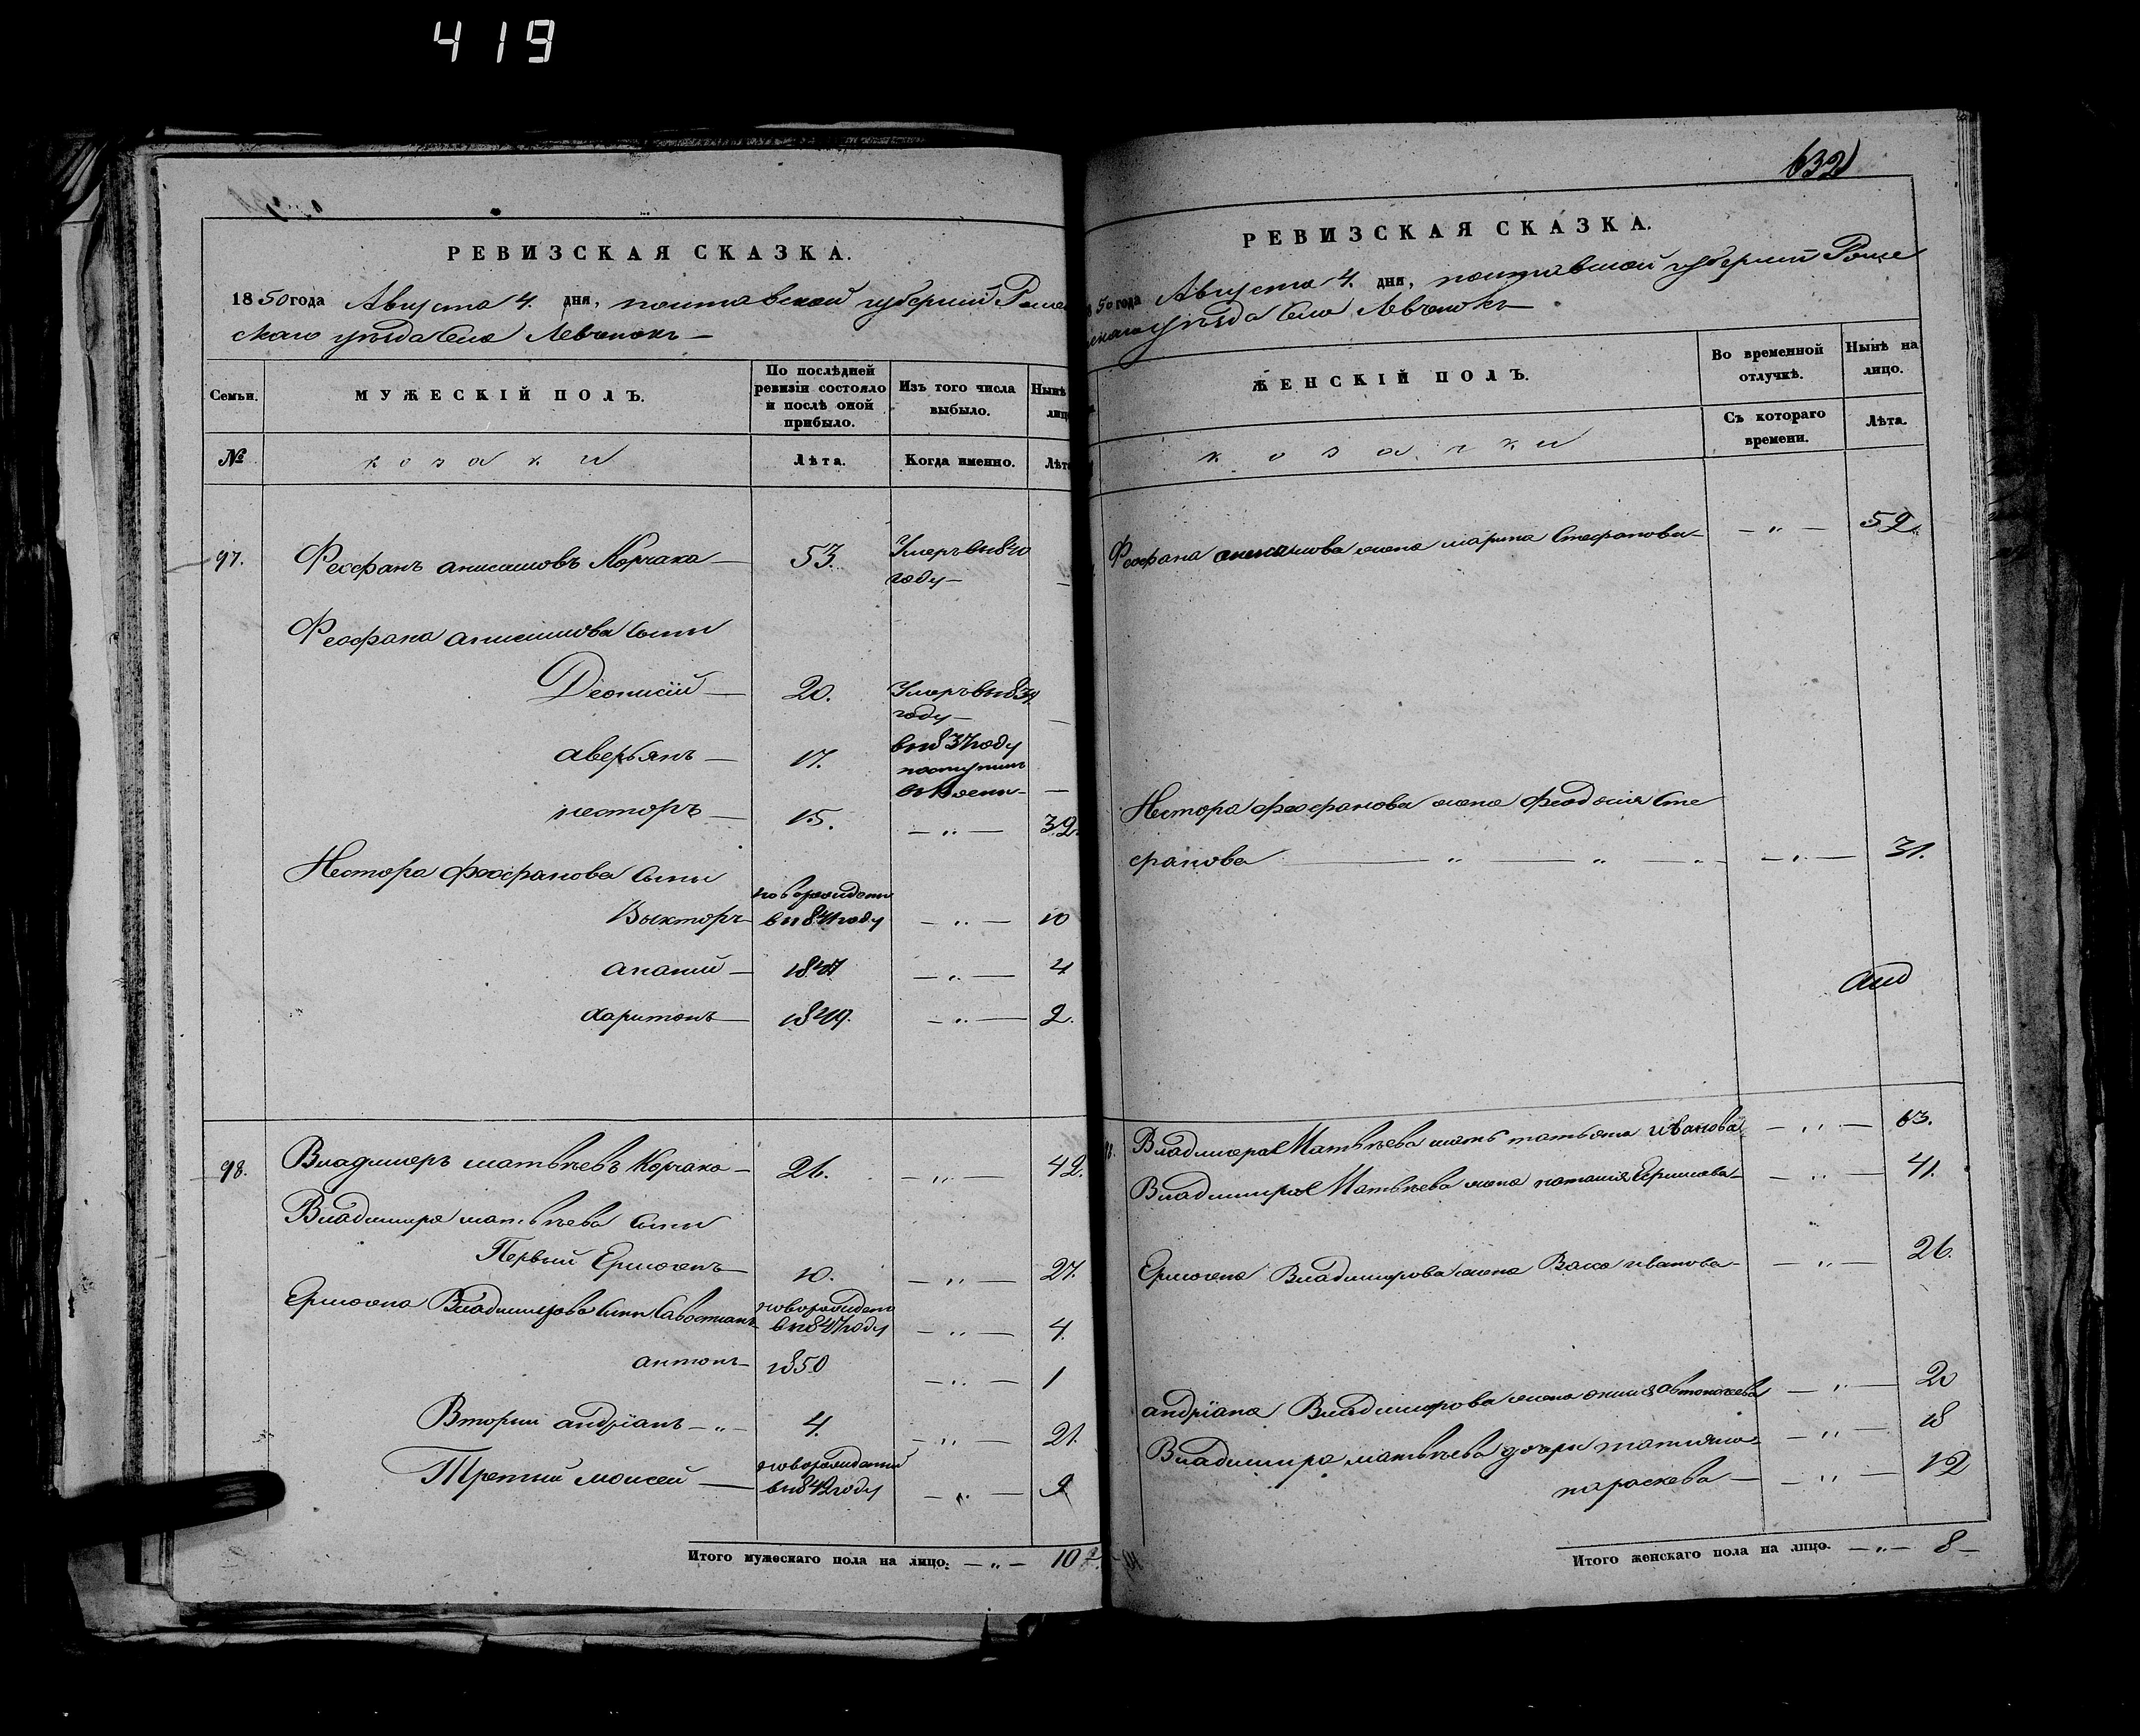 419
РЕВИЗСКАЯ СКАЗКА.
1850 года Августа 4. дня, полтавской губернии Роме
скаго уѣзда села Левченокъ —
Семьи.
МУЖЕСКІЙ ПОЛЪ.
По послѣдней ревизіи состояло и послѣ оной прибыло.
Изъ того числа выбыло.
Нынѣ
лиц
№
козаки
Лѣта.
Когда именно.
Лѣт
97. Феофанъ анисимовъ Корчака — 53. Умеръ въ 1840 году —
Феофана анисимова сыны
Деонисій — 20. Умеръ въ 1839. году —
аверьянъ — 17. въ 1837 году поступилъ
несторъ — 15. — „ — 32.
Нестора феофанова сыны
Выкторъ — новорожденъ въ 1841 году — „ — 10
ананій — 1847 — „ — 4
харитонъ — 1849. — „ — 2.
98. Владимеръ матвѣевъ Корчака — 26. — „ — 42.
Владимира матвѣева сыны
Первый Ермогенъ — 10. — „ — 27.
Ермогена Владимирова сыны Савостианъ новорожденъ въ 1847 году — „ — 4.
антонъ — 1850 — „ — 1
Вторый андріанъ — „ — 4. — „ — 21.
Третій моисей — новорожденный въ 1842 году — „ — 9
Итого мужескаго пола на лицо. — „ — 10
632
РЕВИЗСКАЯ СКАЗКА.
50 года Августа 4. дня, полтавской губерніи Роме
скаго уѣзда села Левченокъ —
ЖЕНСКІЙ ПОЛЪ.
Во временной отлучкѣ.
Нынѣ на лицо.
козачки
Съ котораго времени.
Лѣта.
Феофана анисимова жена марина Стефанова — — „ — 52.
Нестора феофанова жена феодосія Сте
фанова — „ — „ — „ — — „ — 31.
Владимера Матвѣева мать татьяна иванова — „ — 63.
Владимира Матвѣева жена наталія Ефимова — — „ — 41.
Ермогена Владимирова жена Васса иванова — — „ — 26.
андріана Владимирова жена — „ — 20
Владимира матвѣева дочери татияна — — „ — 18
параскева — — „ — 12
Итого женскаго пола на лицо. — „ — 8 —